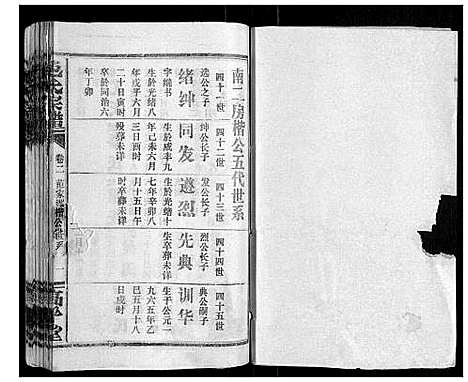 南二房楷公五代世系
四十一世
四十二世
四十三世
四十四世
四十五世
绪绅
同发
遂烈
先典
训华
选公之子
字缙书
生於光绪八
年戊子六月
二十日寅时
卒於同治六
年丁卯
绅公长子
生於咸丰九
年己未六月
三日酉时
殁葬未详
发公长子
生於光绪十
七年辛卯八
月十五日午
时卒葬未详
烈公长子
生卒葬未详
典公嗣子
生于公元一
九六五年乙
巳五月十八
日戌时
卷二
楷公世系
一
堂